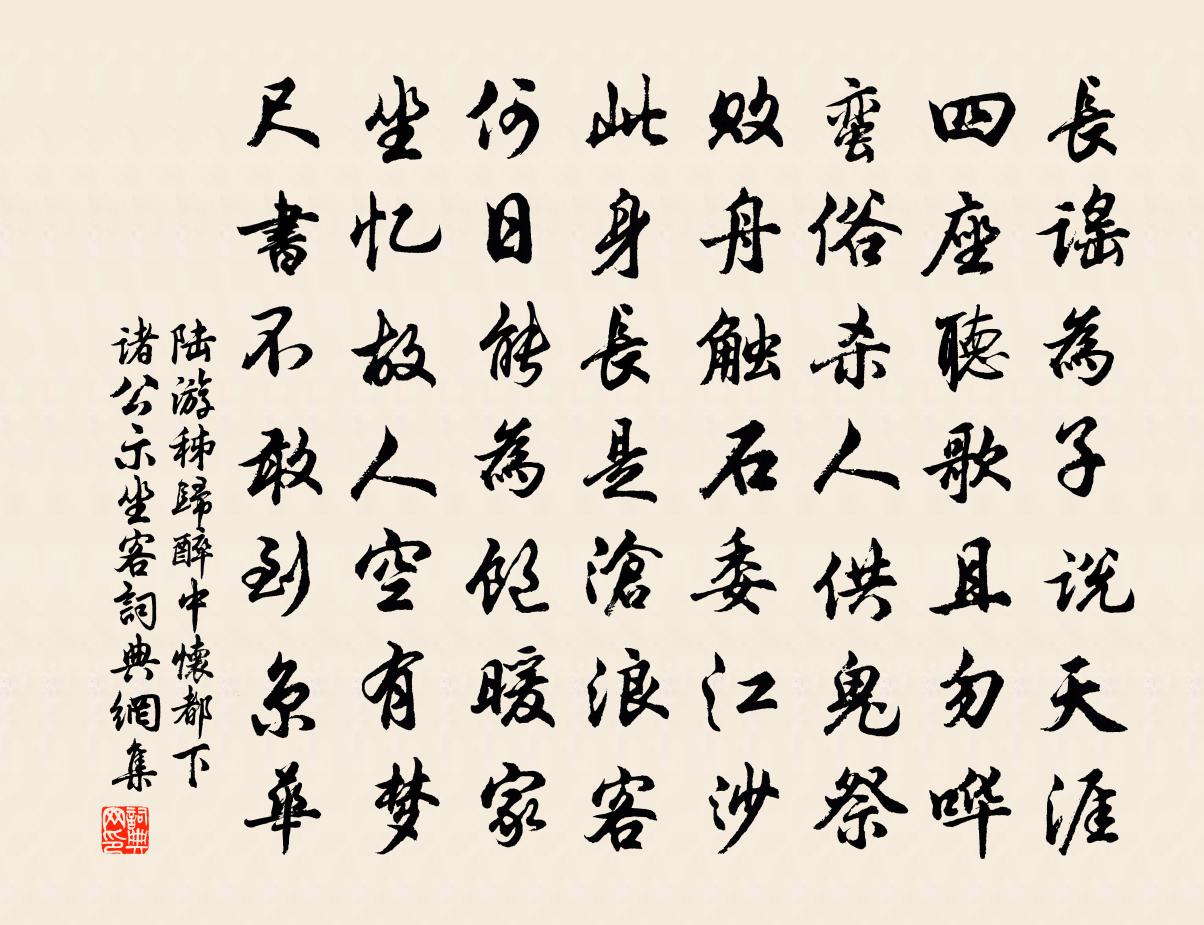 長謠為子说天涯
四座聽歌且勿哗
蛮俗杀人供鬼祭
败舟触石委江沙
此身長是滄浪客
何日能為饱暖家
坐忆故人空有梦
尺書不敢到京華
陆游秭歸醉中懷都下
诸公示坐客詞典網集
詞典
网印